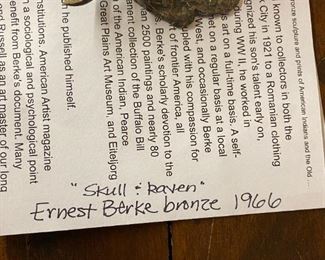 ronze sculpture and prints of American Indians and the Old ...
known to collectors in both the
k City in 1921 to a Romanian clothing
ognized his son's talent early on,
uring WW II, he worked in
s art on a full-time basis. A self-
et on a regular basis at a local
West, and occasionally Berke
upied with his compassion for
t of frontier America, all
s. Berke's scholarly devotion to the
an 2500 paintings and nearly 80
anent collection of the Buffalo Bill
of the American Indian, Pearce
Great Plains Art Museum, and Eiteljorg
he published himself.
Institutions. American Artist magazine
n a sociological and psychological point
enefit from Berke's document. Many
Russell as an art master of our long
"Skull & Raven"
Ernest Berke bronze 1966